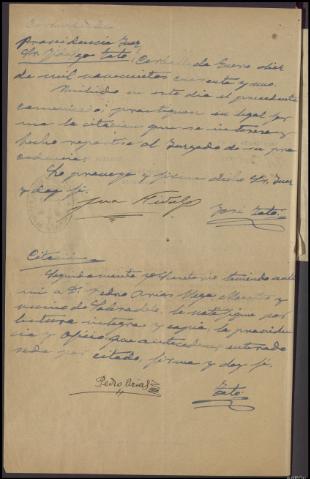 Providencia Juez
Sr. Tato Carballeda Enero diez
de mil novecientos cuarenta y uno.
Recibido en este día el precedente
practíquese en legal for
ma la citación que se interesa y
hecho repórtese al Juzgado de su pro
cedencia.
Lo proveyó y firma dicho Sr. Juez
y doy fe.
José Tato
Citación
Seguidamente yo Secretario teniendo ante
mi a D. Pedro Arias Vega Maestro y
vecino de le notifiqué por
lectura íntegra y copia la providen
cia y Oficio que anteceden, enterado
queda por citado, firma y doy fe.
Pedro Arias
Tato